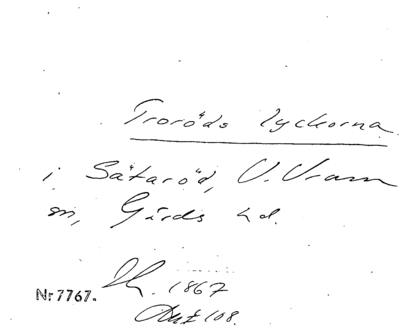 Troröds lyckorna
i Sätaröd, V. Vram
sn, Gärds hd.
1867
Nr 7767.
108.